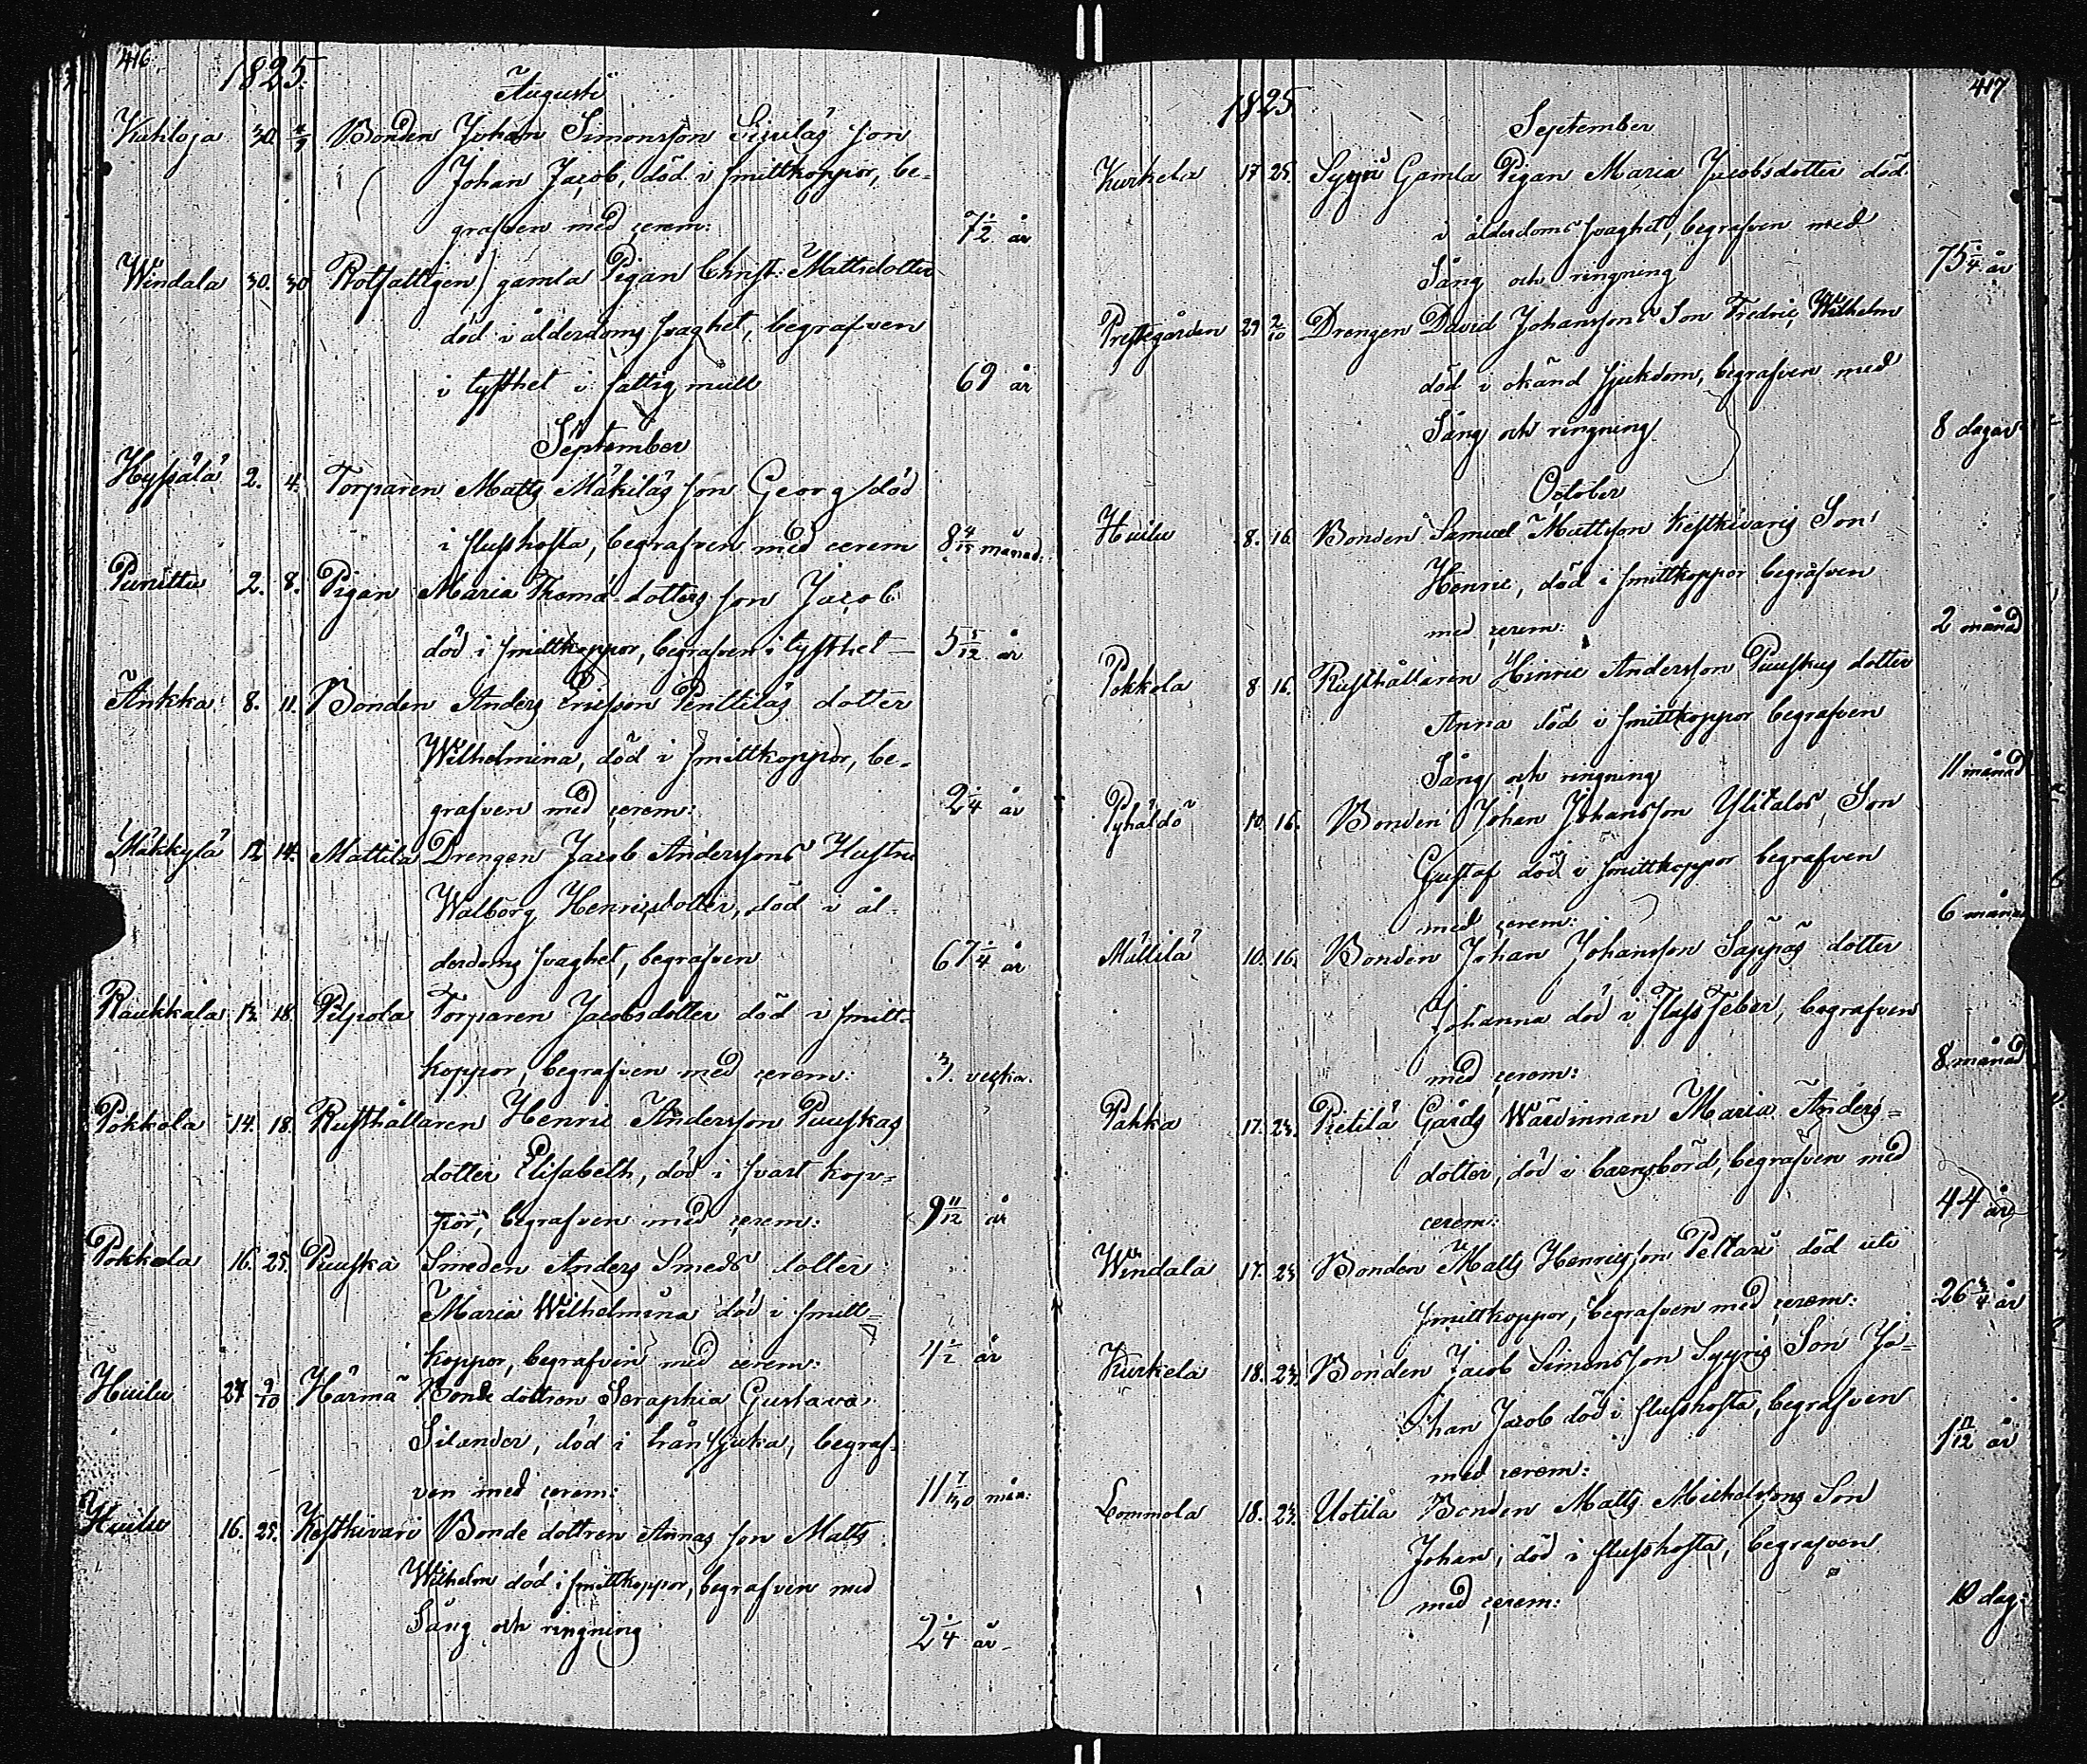 416
1825.
Augusti
Kuhloja 30. 4/9 Bonden Johan Simonsson Sipiläs son
Johan Jacob, död i smittkoppor, be-
grafven med cerem: 7 1/2 år
Windala 30. 30 Rotfattigen gamla Pigan Christ: Mattsdotter
död i ålderdoms svaghet, begrafven
i tysthet i fattig mull 69 år
September
Hyssälä 2. 4. Torparen Matts Mäkiläs son Georg död
i flusshosta, begrafven med cerem 8 4/15 månad:
Punittu 2. 8. Pigan Maria Thomä-dotters son Jacob
död i smittkoppor, begrafven i tysthet — 5 5/12 år
Ankka 8. 11. Bonden Anders Ericsson Penttiläs dotter
Wilhelmina, död i smittkoppor, be-
grafven med cerem: 2 1/4 år
Mäkkylä 12 14. Mattila Drengen Jacob Anderssons Hustru
Walborg Henricsdotter, död i ål-
derdoms svaghet, begrafven 67 1/4 år
Raukkala 13. 18. Pilpola Torparen Jacobsdotter död i smitt-
koppor, begrafven med cerem: 3. veckor.
Pokkola 14. 18. Rusthållaren Henric Andersson Puuskas
dotter Elisabeth, död i svart kop-
por, begrafven med cerem: 9 11/12 år
Pokkola 16. 25. Puuska Smeden Anders Smeds dotter
Maria Wilhelmina död i smitt-
koppor, begrafven med cerem: 4 1/2 år
Huilu 27 9/10 Härmä Bonde dottren Seraphia Gustava
Silander, död i trånsjuka, begraf-
ven med cerem: 11 7/30 mån:
Huilu 16. 25. Keskkivari Bonde dottren Annas son Matts
Wilhelm död i smittkoppor, begrafven med
Sång och ringning 2 1/4 år
417
1825.
September
Kurkela 17 25. Syyri Gamla Pigan Maria Jacobsdotter död
i ålderdoms svaghet, begrafven med
Sång och ringning 75 1/4 år
Prestegården 29 2/10 Drengen David Johanssons Son Fredric Wilhelm
död i okänd sjukdom, begrafven med
Sång och ringning 8 dagar
October
Huilu 8. 16. Bonden Samuel Mattsson Keskkivaris Son
Henric, död i smittkoppor begrafven
med cerem: 2 månad
Pokkola 8 16. Rusthållaren Hinric Andersson Puuskas dotter
Anna död i smittkoppor begrafven
Sång och ringning 11 månad
Pyhäldö 10. 16. Bonden Johan Johansson Ylitalos Son
Gustaf död i smittkoppor begrafven
med cerem: 6 månad
Mällilä 10. 16. Bonden Johan Johansson Säppäs dotter
Johanna död i Fluss Feber, begrafven
med cerem: 8 månad
Pahka 17. 23. Pietilä Gårds Wärdinnan Maria Anders-
dotter, död i barnsbörd, begrafven med
cerem: 44 år
Windala 17. 23 Bonden Matts Henricsson Peltari död uti
smittkoppor, begrafven med cerem: 26 3/4 år
Kurkela 18. 23. Bonden Jacob Simonsson Syyris Son Jo-
han Jacob död i flusshosta, begrafven
med cerem: 1 11/12 år
Lommola 18. 23. Uotila Bonden Matts Michelssons Son
Johan, död i flusshosta, begrafven
med cerem: 10 dag: